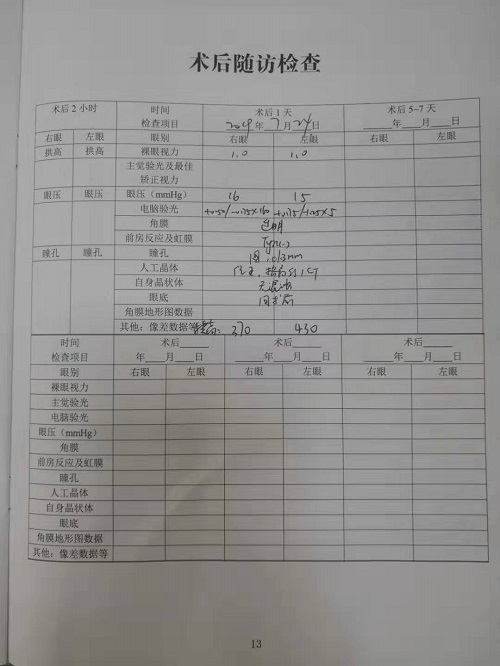 术后随访检查
术后2小时 时间 术后1天 术后5~7天
检查项目 2019年7月24日 ____年____月____日
右眼 左眼 眼别 右眼 左眼 右眼 左眼
拱高 拱高 裸眼视力 1.0 1.0
主觉验光及最佳
矫正视力
眼压 眼压 眼压（mmHg） 16 15
电脑验光
角膜 透明
前房反应及虹膜 Tyn(-)
瞳孔 瞳孔 瞳孔 圆
人工晶体
自身晶状体 无混浊
眼底
角膜地形图数据
其他：像差数据等 370 430
时间 术后______ 术后______ 术后______
检查项目 ____年____月____日 ____年____月____日 ____年____月____日
眼别 右眼 左眼 右眼 左眼 右眼 左眼
裸眼视力
主觉验光
电脑验光
眼压（mmHg）
角膜
前房反应及虹膜
瞳孔
人工晶体
自身晶状体
眼底
角膜地形图数据
其他：像差数据等
13